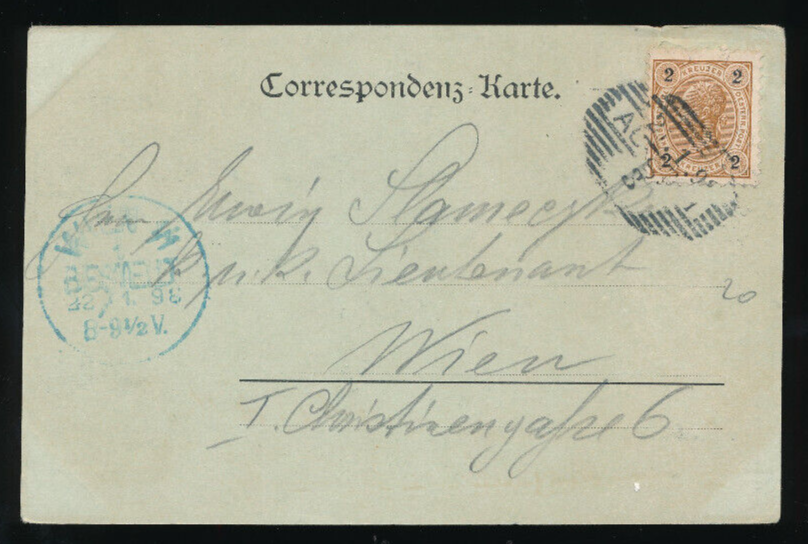 Correspondenz-Karte.
2 KREUZER 2
2 2
Herrn Erwin Slameczka
k. u. k. Lieutenant
Wien
I. Christinengasse 6
WIEN
BESTELLT
22 1. 98
8-9½V.
20